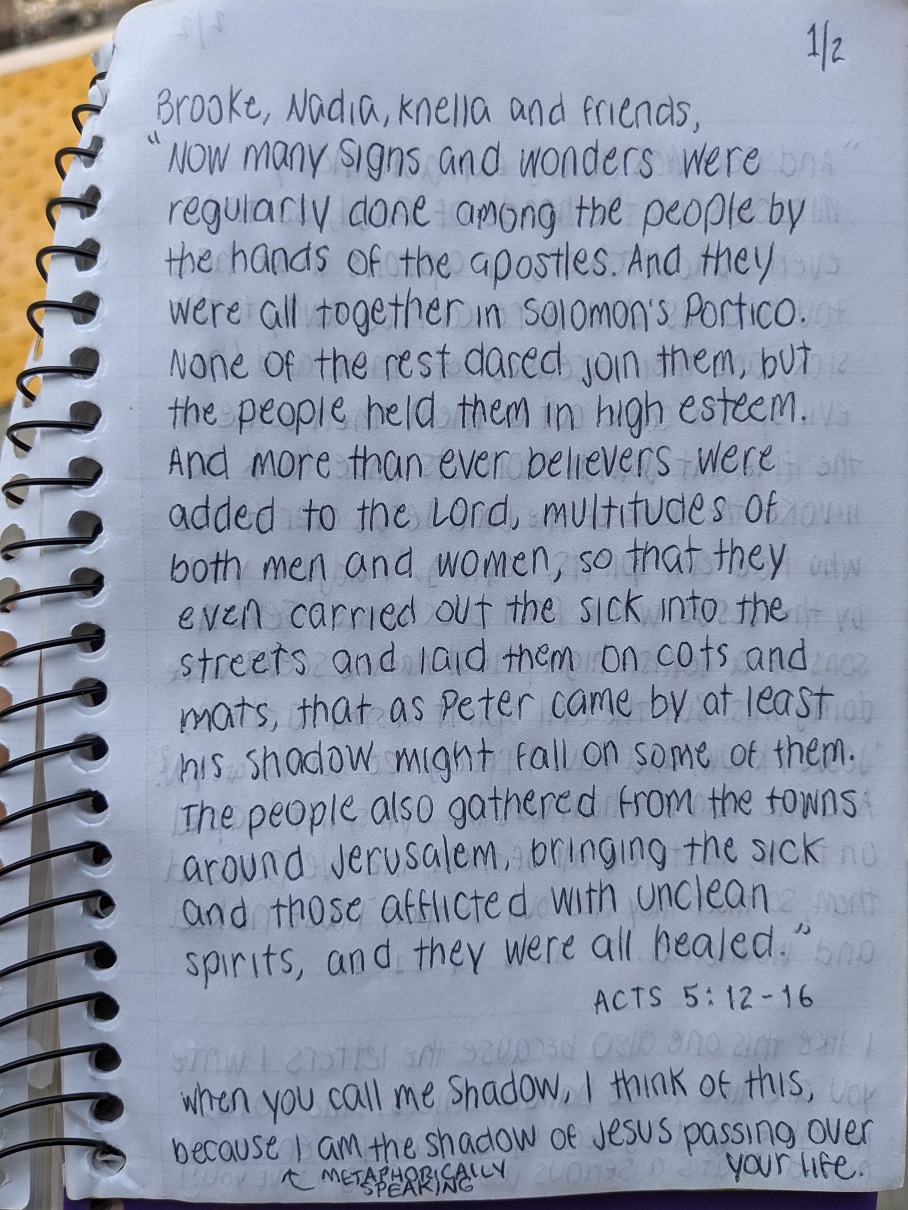 1/2
Brooke, Nadia, Knella and friends,
"Now many signs and wonders were
regularly done among the people by
the hands of the apostles. And they
were all together in Solomon's Portico.
None of the rest dared join them, but
the people held them in high esteem.
And more than ever believers were
added to the Lord, multitudes of
both men and women, so that they
even carried out the sick into the
streets and laid them on cots and
mats, that as Peter came by at least
his shadow might fall on some of them.
The people also gathered from the towns
around Jerusalem, bringing the sick
and those afflicted with unclean
spirits, and they were all healed."
ACTS 5:12-16
when you call me shadow, I think of this,
because I am the shadow of Jesus passing over
your life.
METAPHORICALLY
SPEAKING